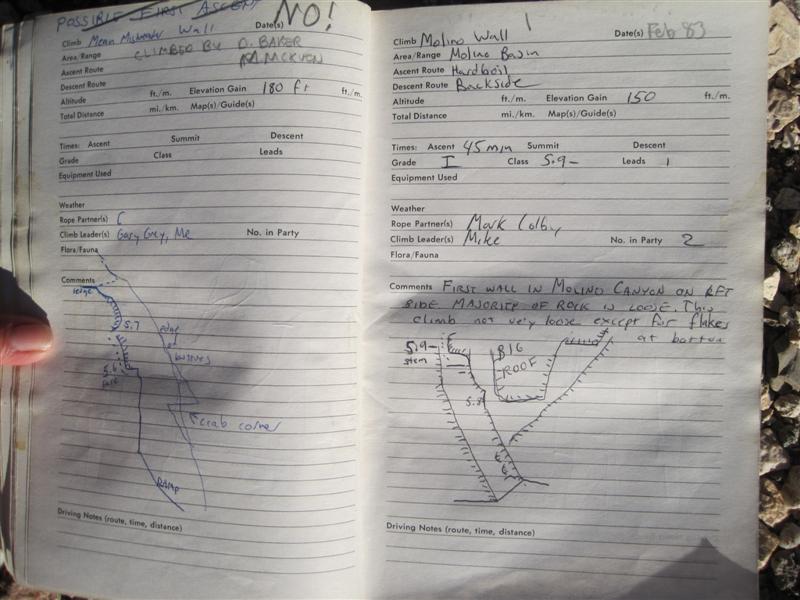 POSSIBLE FIRST ASCENT NO!
Climb Wall Date(s)
Area/Range CLIMBED BY D. BAKER
Ascent Route
Descent Route
Altitude ft./m. Elevation Gain 180 ft ft./m.
Total Distance mi./km. Map(s)/Guide(s)
Times: Ascent Summit Descent
Grade Class Leads
Equipment Used
Weather
Rope Partner(s)
Climb Leader(s) Gary Grey, Me No. in Party
Flora/Fauna
Comments
ledge
5.7
edge
bushes
5.6
face
crab corner
RAMP
Driving Notes (route, time, distance)
1
Climb Molino Wall Date(s) Feb 83
Area/Range Molino Basin
Ascent Route Hardboil
Descent Route Backside
Altitude ft./m. Elevation Gain 150 ft./m.
Total Distance mi./km. Map(s)/Guide(s)
Times: Ascent 45 min Summit Descent
Grade I Class 5.9- Leads 1
Equipment Used
Weather
Rope Partner(s) Mark Colby
Climb Leader(s) Mike No. in Party 2
Flora/Fauna
Comments FIRST WALL IN MOLINO CANYON ON LEFT
SIDE MAJORITY OF ROCK IS LOOSE. This
climb not very loose except for flakes
at bottom
5.9-
stem
BIG
ROOF
5.8
Driving Notes (route, time, distance)